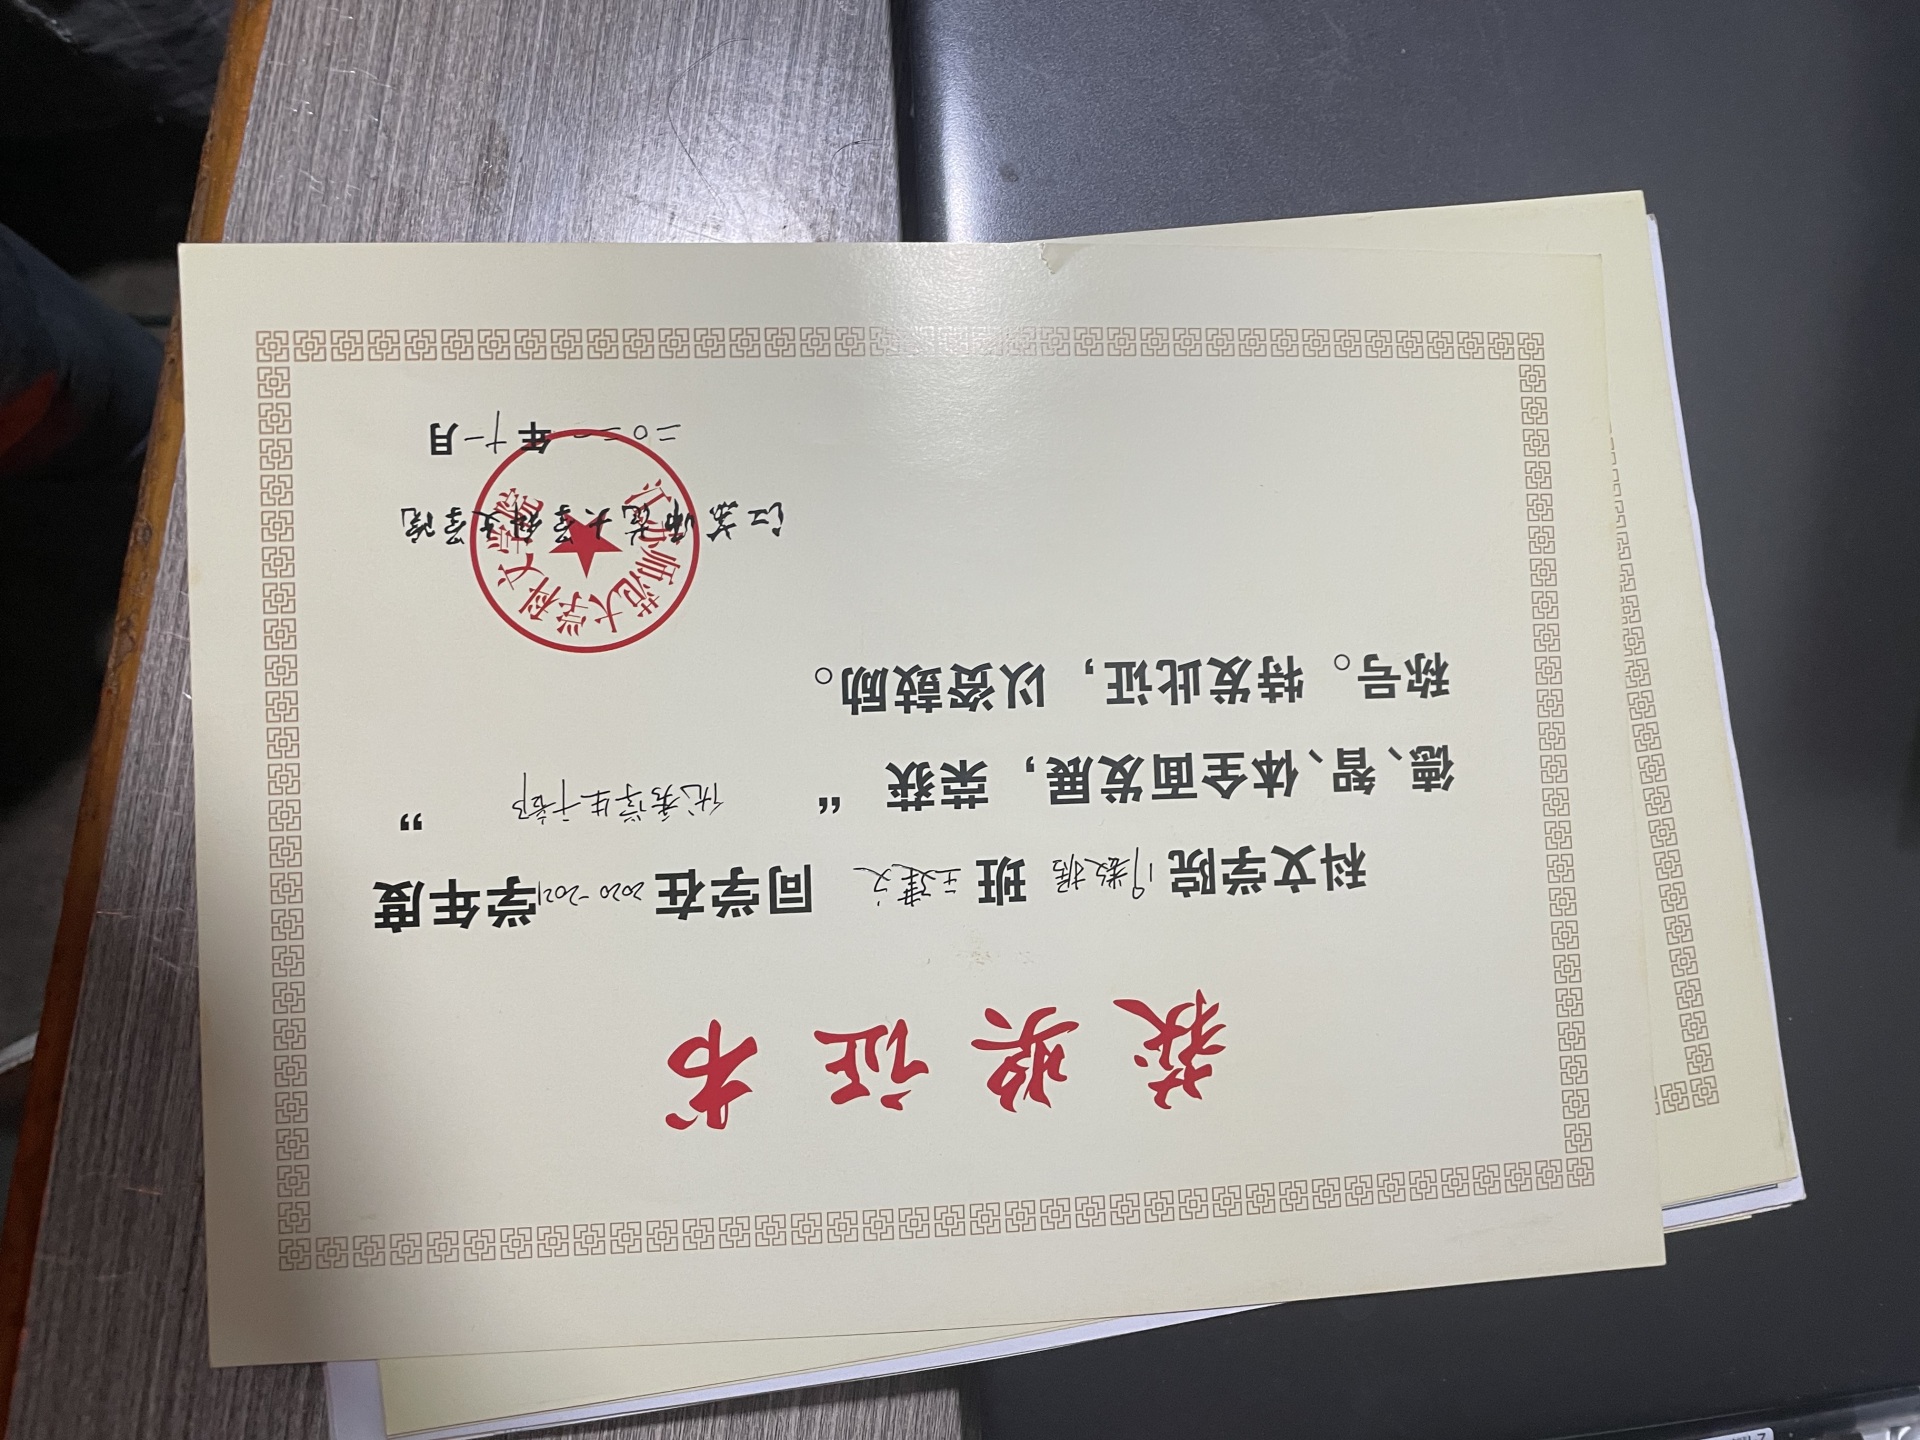 获奖证书
科文学院19数据班王建文同学在2020-2021学年度
德、智、体全面发展，荣获“优秀学生干部”
称号。特发此证，以资鼓励。
江苏师范大学科文学院
江苏师范大学科文学院
二〇二一年十一月